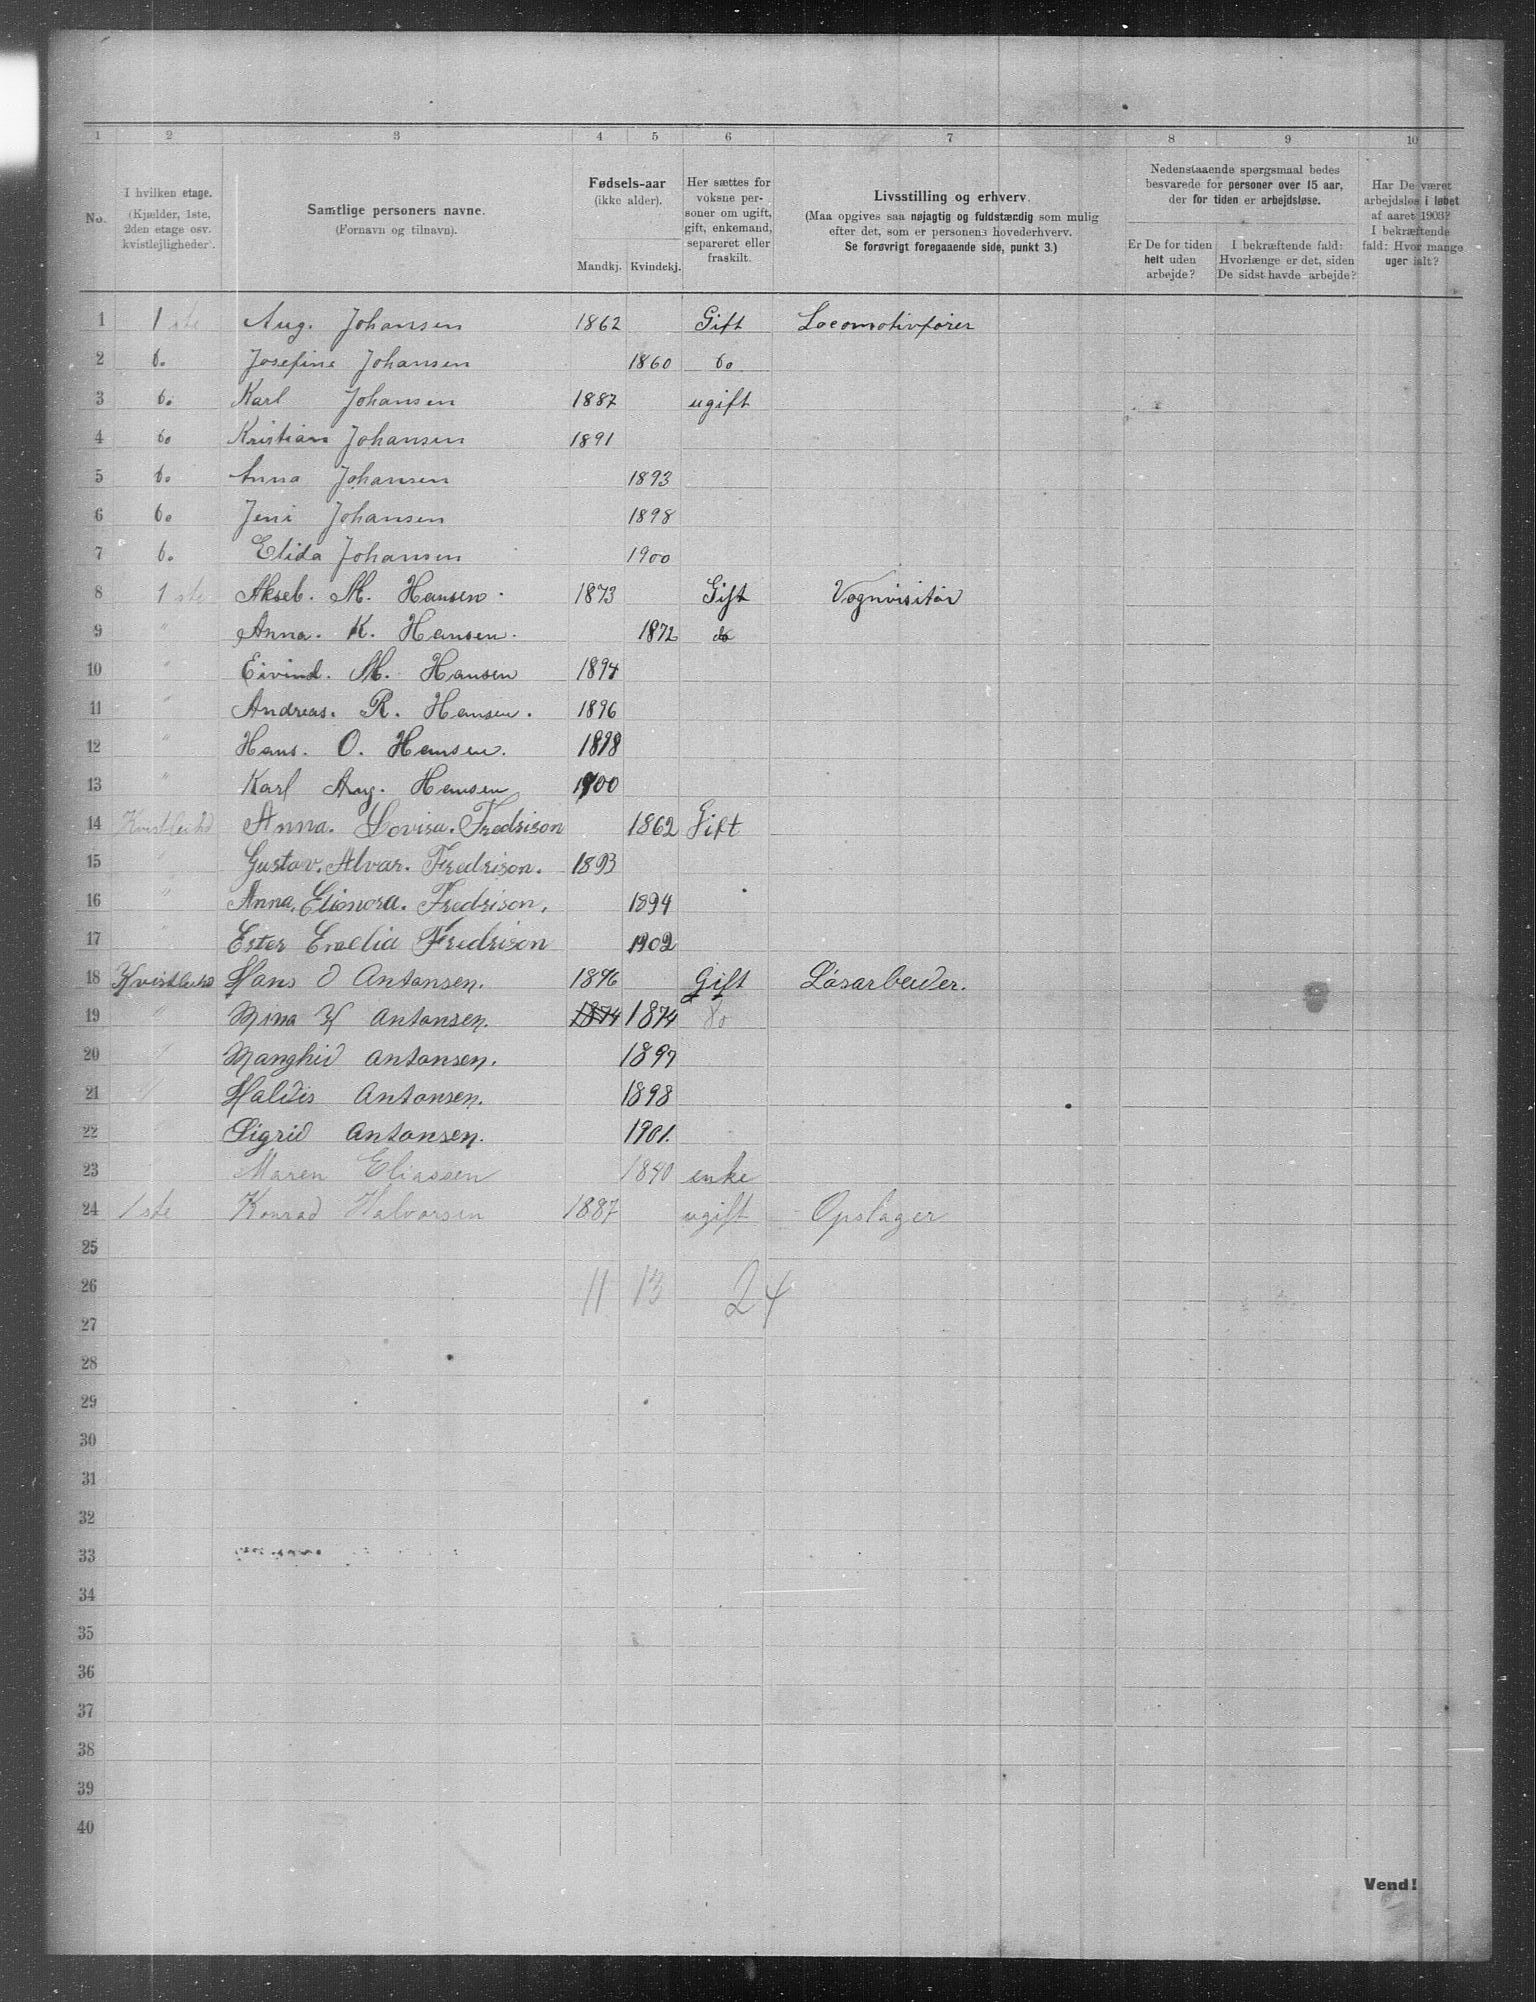 1 2 3 4 5 6 7 8 9 10
No.
I hvilken etage.
(Kjælder, 1ste,
2den etage osv.
kvistlejligheder).
Samtlige personers navne.
(Fornavn og tilnavn).
Fødsels-aar
(ikke alder).
Mandkj. Kvindekj.
Her sættes for
voksne per-
soner om ugift,
gift, enkemand,
separeret eller
fraskilt.
Livsstilling og erhverv.
(Maa opgives saa nøjagtig og fuldstændig som mulig
efter det, som er personens hovederhverv.
Se forøvrigt foregaaende side, punkt 3.)
Nedenstaaende spørgsmaal bedes
besvarede for personer over 15 aar,
der for tiden er arbejdsløse.
Er De for tiden
helt uden
arbejde?
I bekræftende fald:
Hvorlænge er det, siden
De sidst havde arbejde?
Har De været
arbejdsløs i løbet
af aaret 1903?
I bekræftende
fald: Hvor mange
uger ialt?
1 1 ste Aug. Johansen 1862 Gift Locomotivfører
2 do Josefine Johansen 1860 do
3 do Karl Johansen 1887 ugift
4 do Kristian Johansen 1891
5 do Anna Johansen 1893
6 do Jeni Johansen 1898
7 do Elida Johansen 1900
8 1 ste Aksel. M. Hansen. 1873 Gift Vognvisitør
9 " Anna. K. Hansen. 1872 do
10 " Eivind. M. Hansen 1894
11 " Andreas. R. Hansen. 1896
12 " Hans. O. Hansen. 1898
13 " Karl Aug. Hansen 1900
14 Anna. Lovisa. Fredrison 1862 Gift
15 " Gustav. Alvar. Fredrison. 1893
16 " Anna. Elionora. Fredrison. 1894
17 " Ester Emelia Fredrison 1902
18 Hans O Antonsen. 1876 Gift Løsarbeider.
19 " Nina H Antonsen. 1874 1874 do
20 " Manghid Antonsen. 1897
21 " Haldis Antonsen. 1898
22 " Sigrid Antonsen. 1901.
23 Maren Eliassen 1840 enke
24 1 ste Konrad Halvorsen 1887 ugift Opslager
25
26 11 13 24
27
28
29
30
31
32
33
34
35
36
37
38
39
40
Vend!